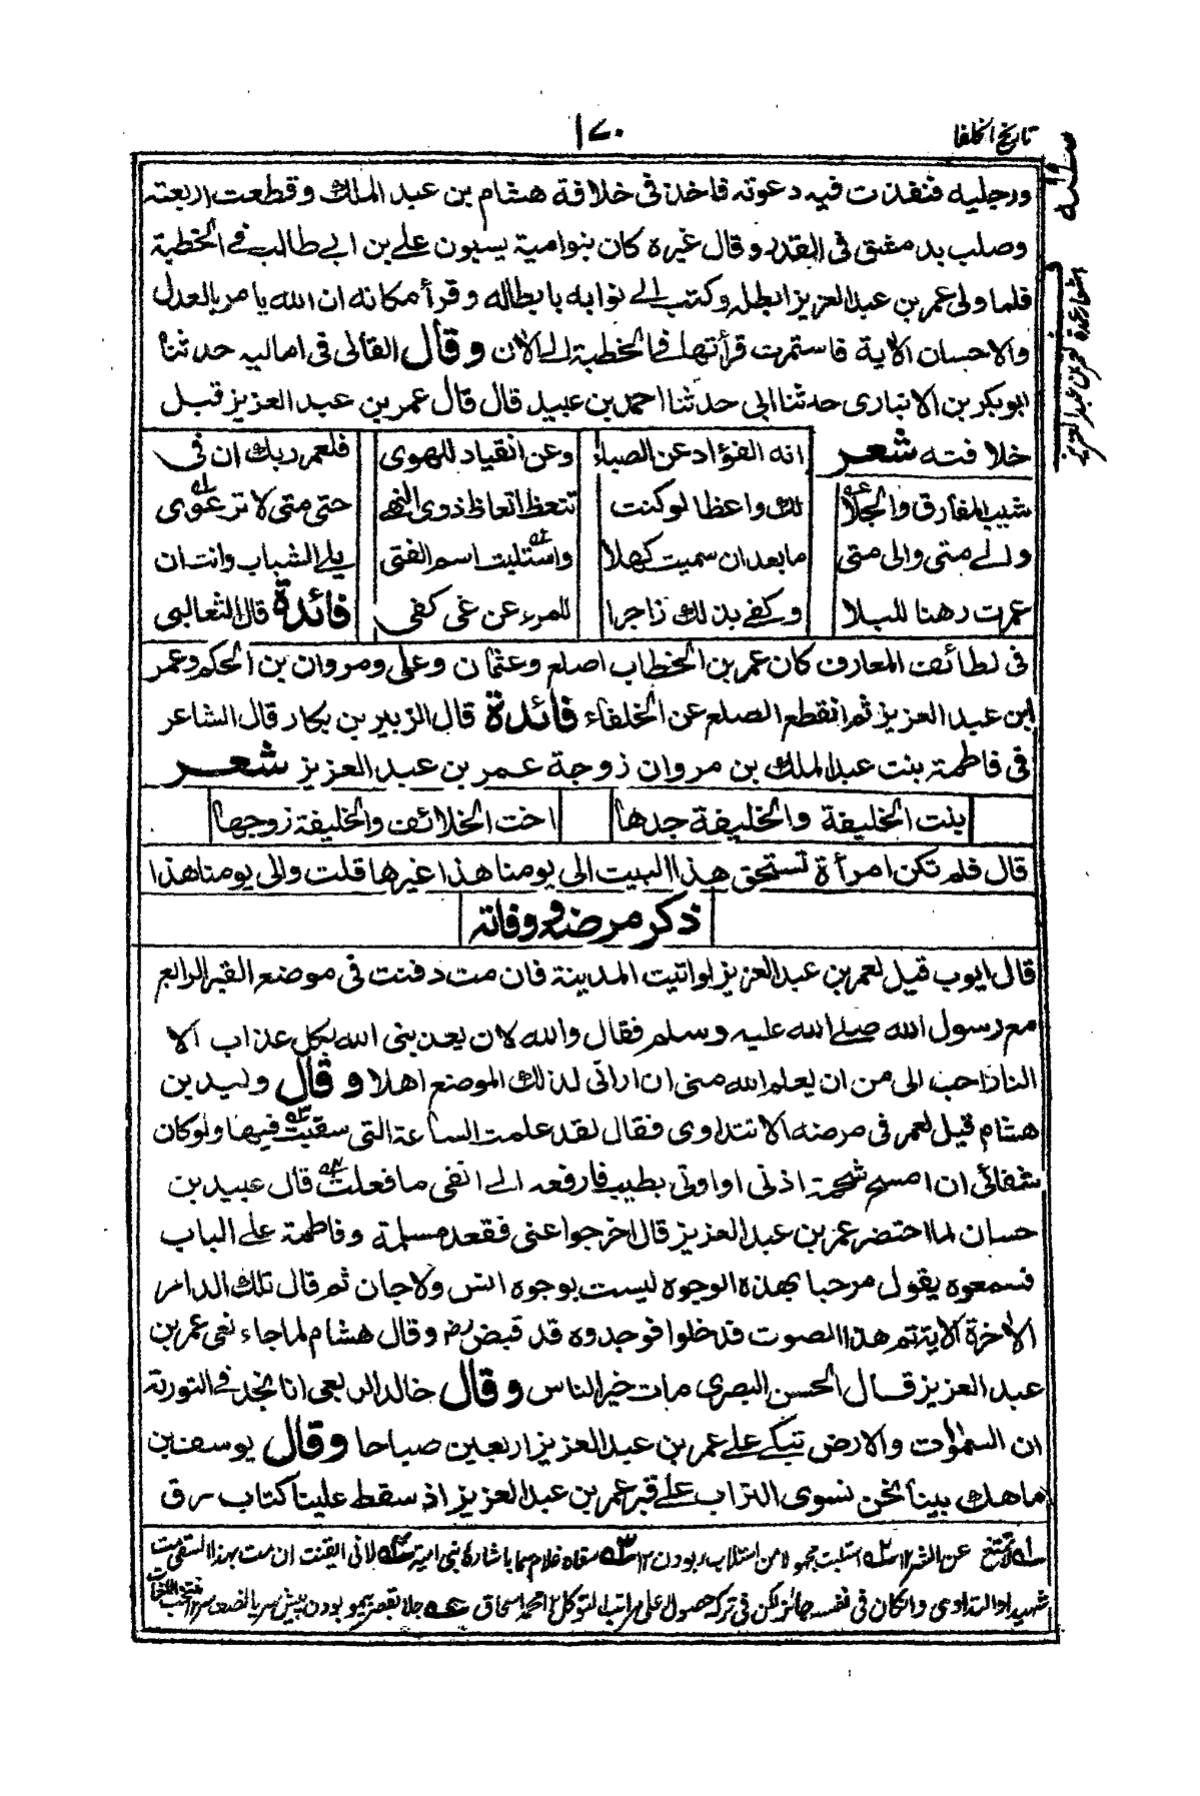 تاريخ الخلفا
١٧٠
ورجليه فنفذت فيه دعوته فاخذ فى خلافة هشام بن عبد الملك وقطعت اربعته
وصلب بدمشق فى القدر وقال غيره كان بنوامية يسبون على بن ابى طالب فى الخطبة
فلما ولى عمر بن عبد العزيز ابطله وكتب الى نوابه بابطاله وقرأ مكانه ان الله يامر بالعدل
والاحسان الاية فاستمرت قرأتها فى الخطبة الى الان وقال القالى فى اماليه حدثنا
ابوبكر بن الانبارى حدثنا ابى حدثنا احمد بن عبيد قال قال عمر بن عبد العزيز قبل
خلافته شعر انه الفؤاد عن الصبا وعن انقياد للهوى فلعمر ربك ان فى
شيب المفارق والجلا لك واعظا لو كنت تتعظ اتعاظ ذوى النهى حتى متى لا ترعوى
والى متى والى متى ما بعد ان سميت كهلا واستلبت اسم الفتى بلى الشباب وانت ان
عمرت رهنا للبلا وكفى بذلك زاجرا للمرء عن غى كفى فائدة قال الثعالبى
فى لطائف المعارف كان عمر بن الخطاب اصلع وعثمان وعلى ومروان بن الحكم وعمر
ابن عبد العزيز ثم انقطع الصلع عن الخلفاء فائدة قال الزبير بن بكار قال الشاعر
فى فاطمة بنت عبد الملك بن مروان زوجة عمر بن عبد العزيز شعر
بنت الخليفة والخليفة جدها اخت الخلائف والخليفة زوجها
قال فلم تكن امرأة تستحق هذا البيت الى يومنا هذا غيرها قلت والى يومنا هذا
ذكر مرضه ووفاته
قال ايوب قيل لعمر بن عبد العزيز لو اتيت المدينة فان مت دفنت فى موضع القبر الرابع
مع رسول الله صلى الله عليه وسلم فقال والله لان يعذبنى الله بكل عذاب الا
النار احب الى من ان يعلم الله منى ان ارانى لذلك الموضع اهلا وقال وليد بن
هشام قيل لعمر فى مرضه الا تتداوى فقال لقد علمت الساعة التى سقيت فيها ولو كان
شفائى ان امسح شحمة اذنى او اوتى بطيب فارفعه الى انفى ما فعلت قال عبيد بن
حسان لما احتضر عمر بن عبد العزيز قال اخرجوا عنى فقعد مسلمة وفاطمة على الباب
فسمعوه يقول مرحبا بهذه الوجوه ليست بوجوه انس ولا جان ثم قال تلك الدار
الاخرة الاية ثم هذا الصوت فدخلوا فوجدوه قد قبض رض وقال هشام لما جاء نعى عمر بن
عبد العزيز قال الحسن البصرى مات خير الناس وقال خالد الربعى انا نجد فى التورية
ان السموات والارض تبكى على عمر بن عبد العزيز اربعين صباحا وقال يوسف بن
ماهك بينا نحن نسوى التراب على قبر عمر بن عبد العزيز اذ سقط علينا كتاب رق
عن الشر ١٢ استلبت مجهولا من استلاب ربودن ١٢ سقاه غلام سما باشارة بنى امية لانى ايقنت ان مت بهذا السقى مت
شهيدا والتداوى وان كان فى نفسه جائز لكن فى تركه حصول على مراتب التوكل ١٢ محمد اسحاق جلا بقصر بے مو بودن پيش سر